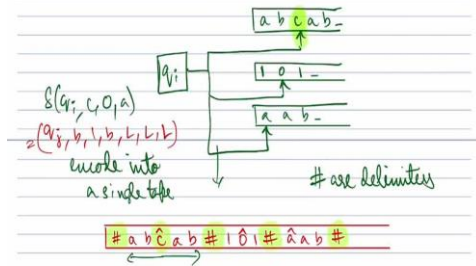 a b c a b _
q_i
1 0 1 _
δ(q_i, c, 0, a)
a a b _
= (q_j, b, 1, b, L, L, L)
encode into
a single tape
# are delimiters
# a b ĉ a b # 1 0̂ 1 # â a b #